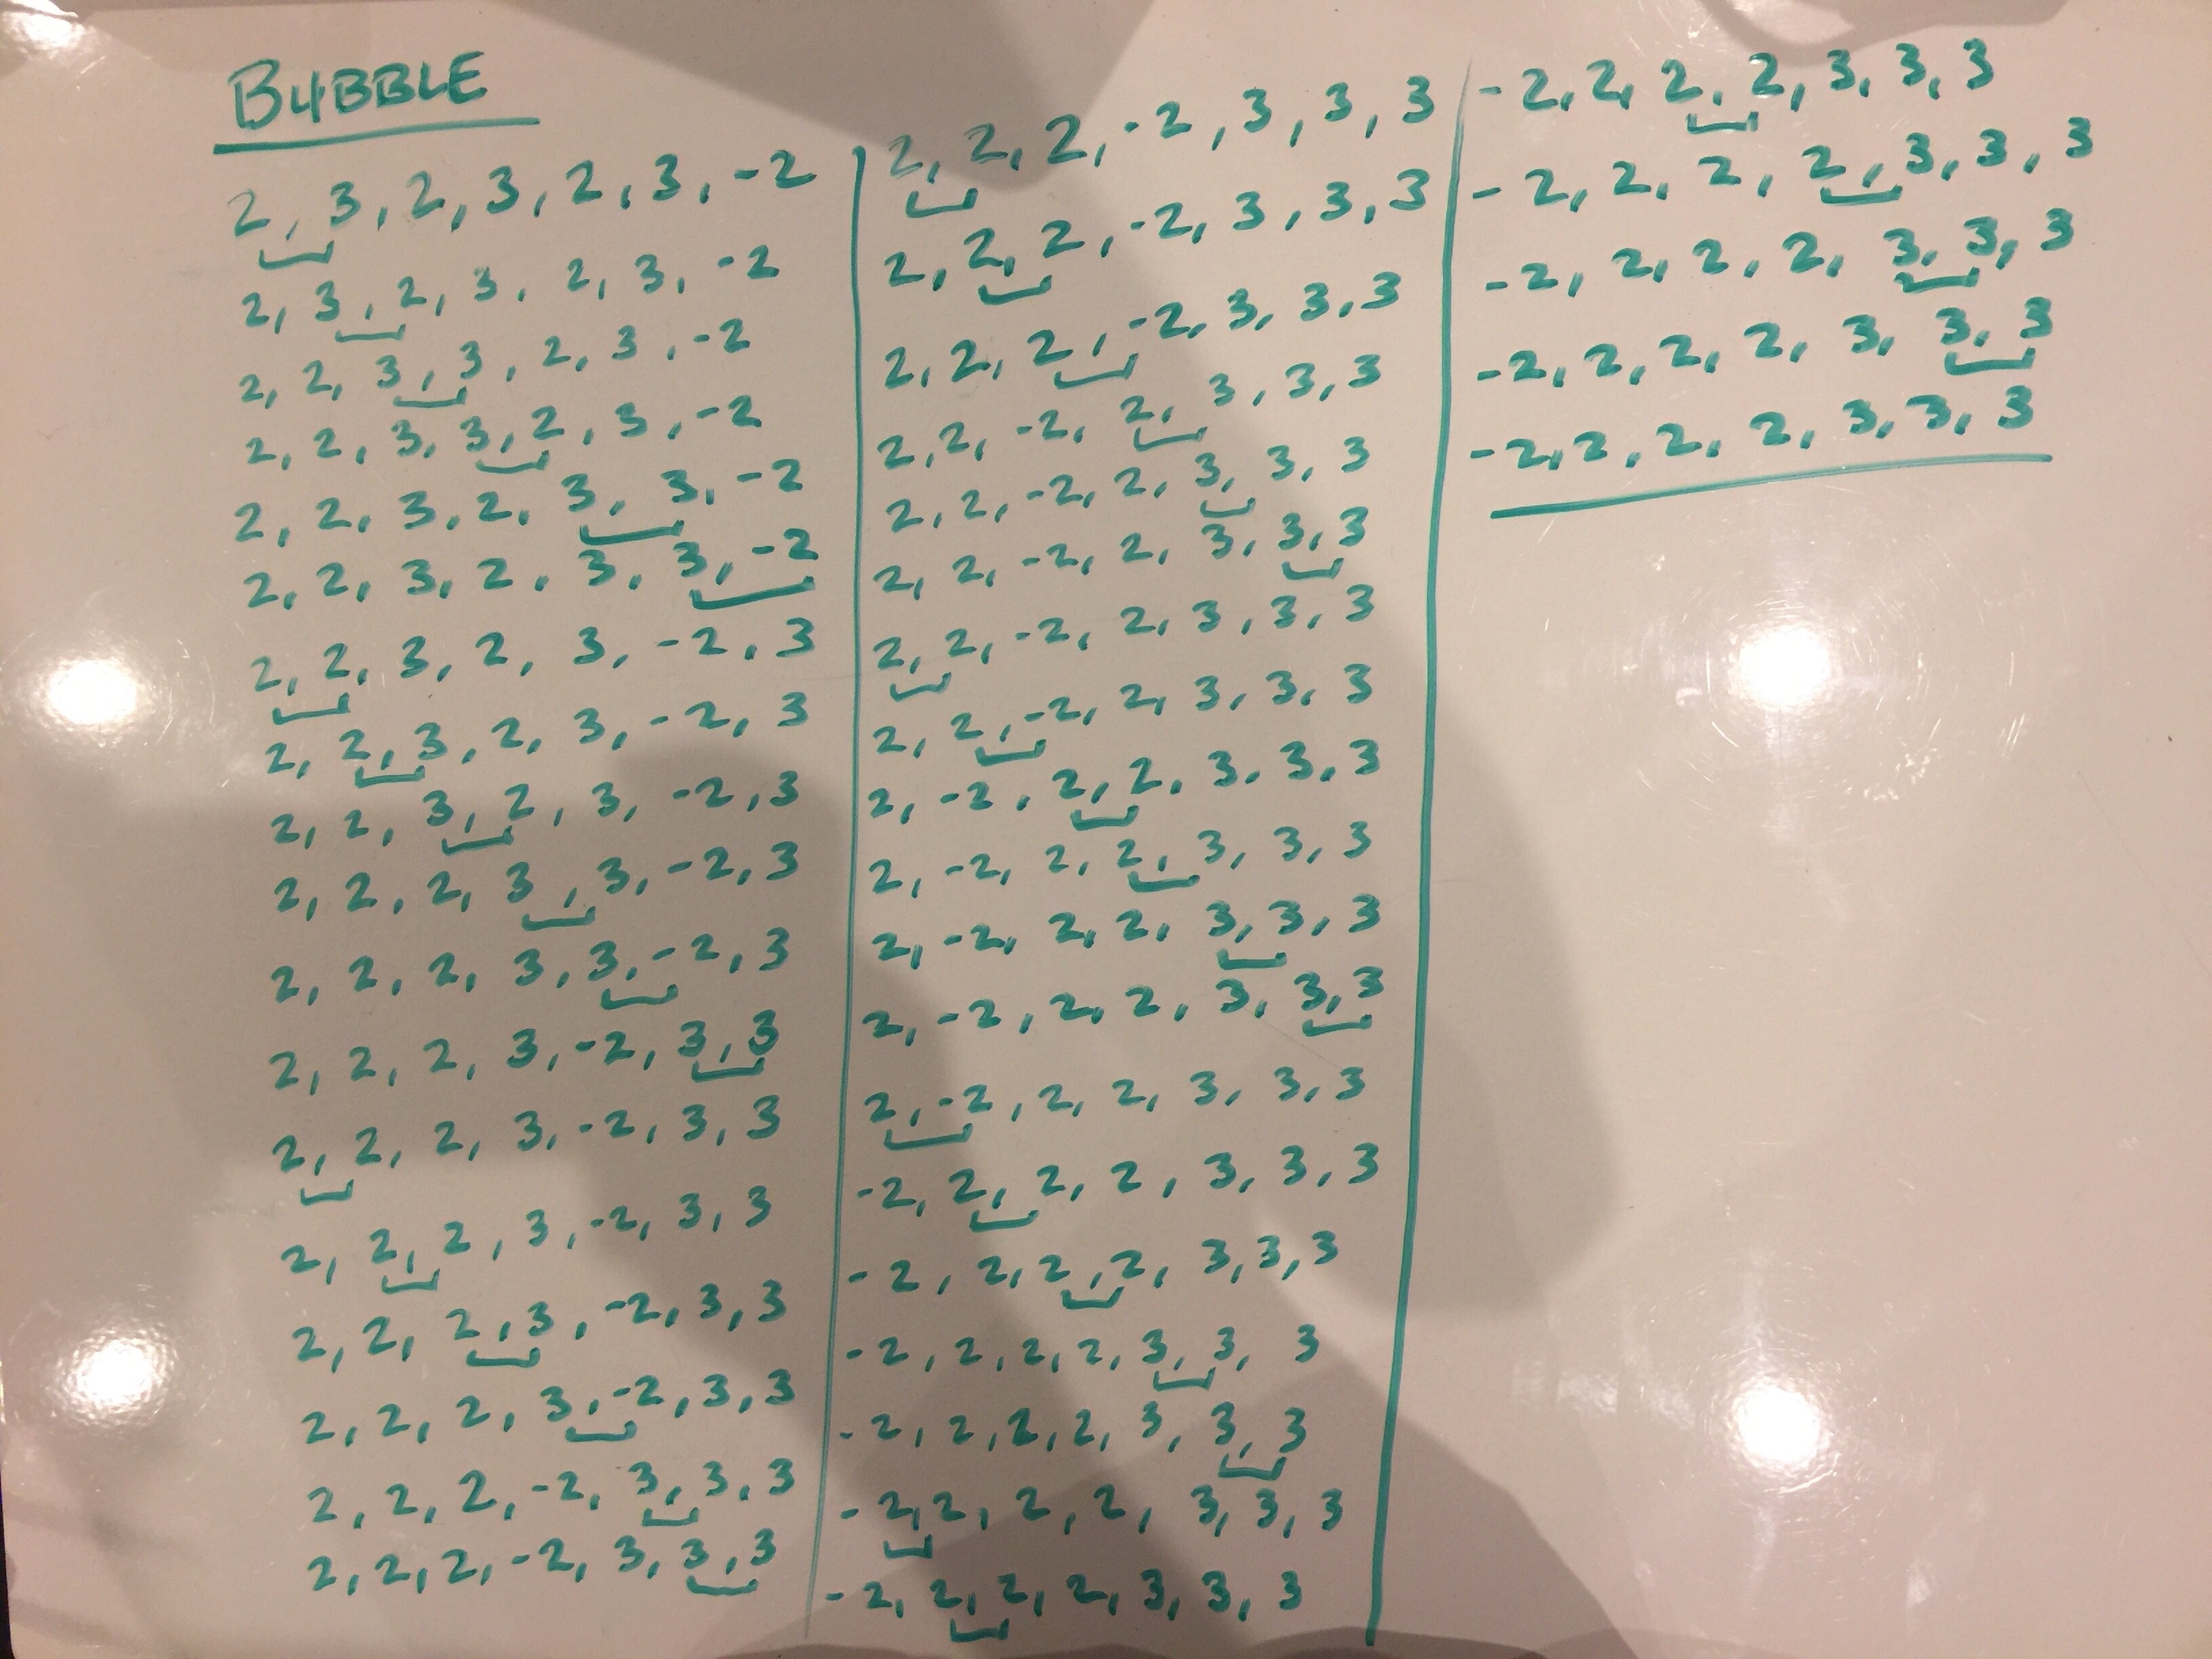 BUBBLE
2, 3, 2, 3, 2, 3, -2
2, 3, 2, 3, 2, 3, -2
2, 2, 3, 3, 2, 3, -2
2, 2, 3, 3, 2, 3, -2
2, 2, 3, 2, 3, 3, -2
2, 2, 3, 2, 3, 3, -2
2, 2, 3, 2, 3, -2, 3
2, 2, 3, 2, 3, -2, 3
2, 2, 3, 2, 3, -2, 3
2, 2, 2, 3, 3, -2, 3
2, 2, 2, 3, 3, -2, 3
2, 2, 2, 3, -2, 3, 3
2, 2, 2, 3, -2, 3, 3
2, 2, 2, 3, -2, 3, 3
2, 2, 2, 3, -2, 3, 3
2, 2, 2, 3, -2, 3, 3
2, 2, 2, -2, 3, 3, 3
2, 2, 2, -2, 3, 3, 3
2, 2, 2, -2, 3, 3, 3
2, 2, 2, -2, 3, 3, 3
2, 2, 2, -2, 3, 3, 3
2, 2, -2, 2, 3, 3, 3
2, 2, -2, 2, 3, 3, 3
2, 2, -2, 2, 3, 3, 3
2, 2, -2, 2, 3, 3, 3
2, 2, -2, 2, 3, 3, 3
2, -2, 2, 2, 3, 3, 3
2, -2, 2, 2, 3, 3, 3
2, -2, 2, 2, 3, 3, 3
2, -2, 2, 2, 3, 3, 3
2, -2, 2, 2, 3, 3, 3
-2, 2, 2, 2, 3, 3, 3
-2, 2, 2, 2, 3, 3, 3
-2, 2, 2, 2, 3, 3, 3
-2, 2, 2, 2, 3, 3, 3
-2, 2, 2, 2, 3, 3, 3
-2, 2, 2, 2, 3, 3, 3
-2, 2, 2, 2, 3, 3, 3
-2, 2, 2, 2, 3, 3, 3
-2, 2, 2, 2, 3, 3, 3
-2, 2, 2, 2, 3, 3, 3
-2, 2, 2, 2, 3, 3, 3